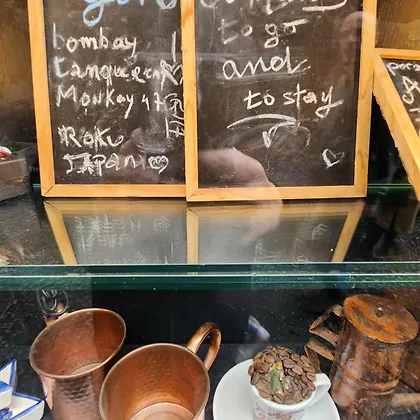 gin
bombay
tanqueray
Monkey 47
ROKU
JAPAN
to go
and
to stay